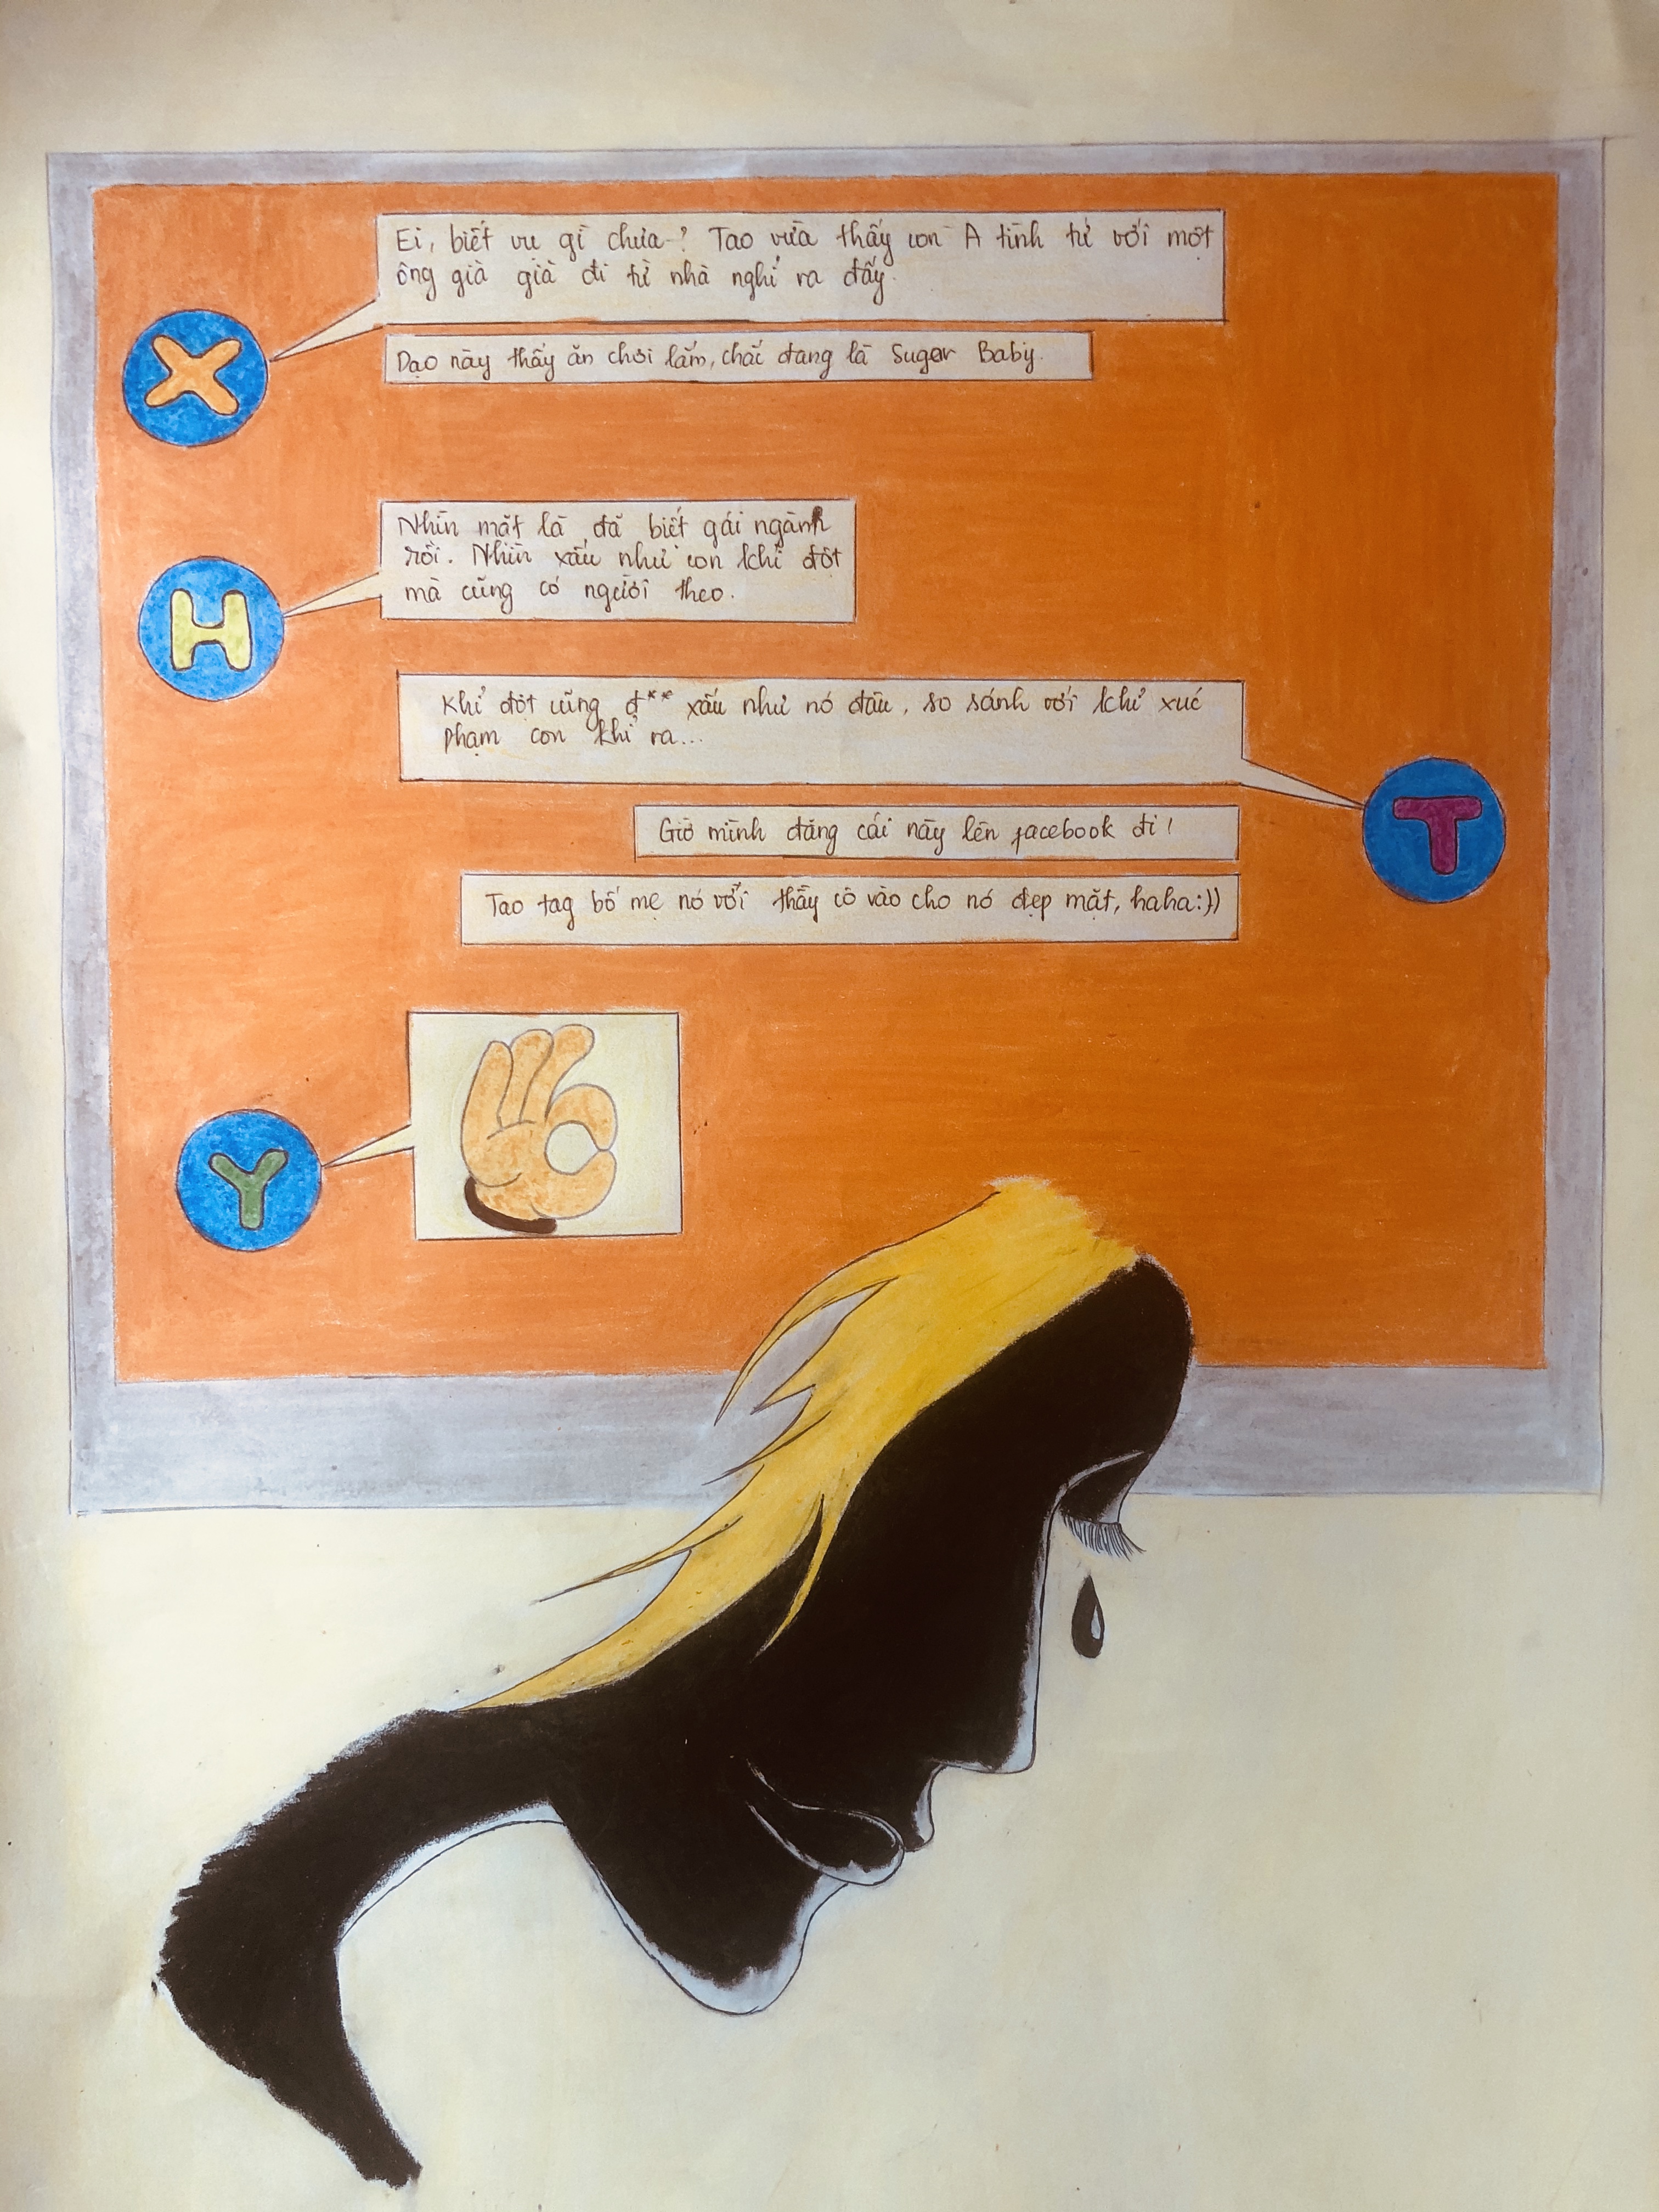 X
Ei, biết vụ gì chưa? Tao vừa thấy con A tình tứ với một
ông già già đi từ nhà nghỉ ra đấy.
Dạo này thấy ăn chơi lắm, chắc đang là Sugar Baby.
H
Nhìn mặt là đã biết gái ngành
rồi. Nhìn xấu như con khỉ đột
mà cũng có người theo.
Khỉ đột cũng đ** xấu như nó đâu, so sánh với khỉ xúc
phạm con khỉ ra...
T
Giờ mình đăng cái này lên facebook đi!
Tao tag bố mẹ nó với thầy cô vào cho nó đẹp mặt, haha:))
Y